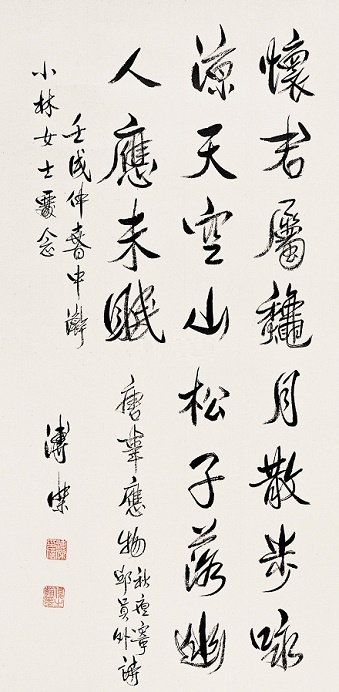 懷君屬龝月散步咏
涼天空山松子落幽
人應未眠
唐韋應物秋夜寄
邱員外詩
壬戌仲春中澣
小林女士雯念
溥傑